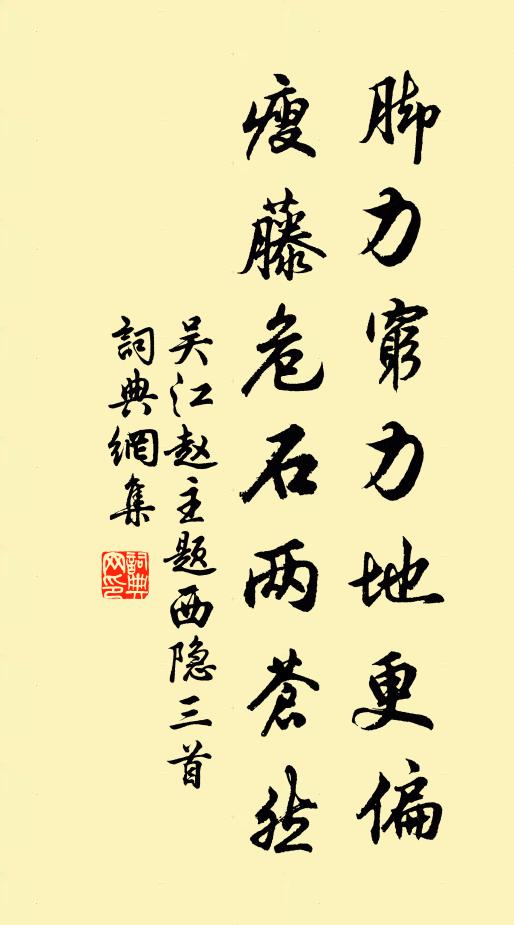 脚力窮力地更偏
瘦藤危石两蒼然
吴江赵主题西隐三首
詞典網集
詞典网印